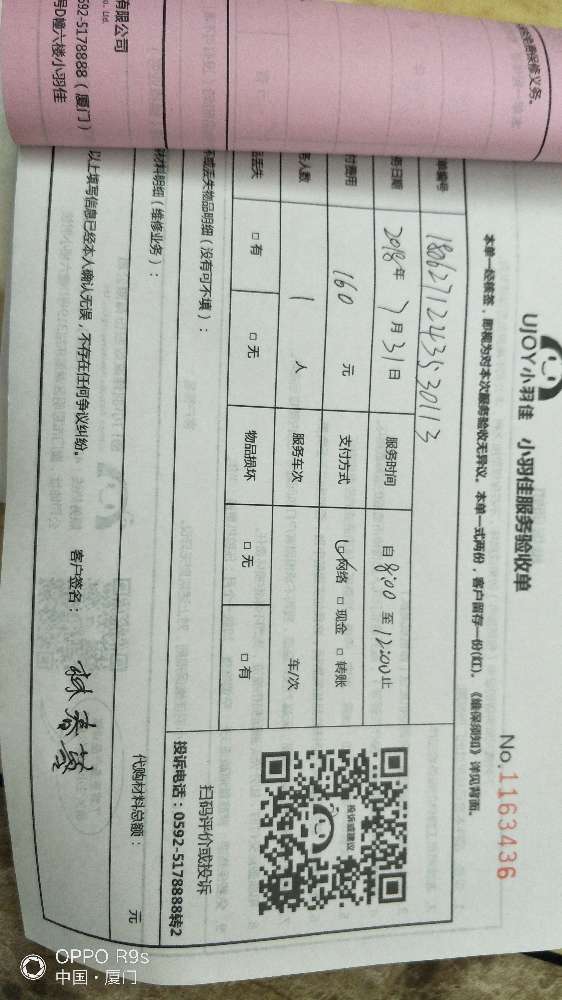 UJOY小羽佳 小羽佳服务验收单
No.1163436
本单一经核签，即视为对本次服务验收无异议。本单一式两份，客户留存一份(红)。《维保须知》详见背面。
单编号 18062711243530113
务日期 2018年7月31日 服务时间 自8:00至12:00止
付费用 160 元 支付方式 ☑网络 □现金 □转账
务人数 1 人 服务车次 车/次
品丢失 □有 □无 物品损坏 □无 □有
坏或丢失物品明细（没有可不填）：
扫码评价或投诉
投诉电话：0592-5178888转2
投诉或建议
材料明细（维修业务）：
代购材料总额： 元
以上填写信息已经本人确认无误，不存在任何争议纠纷。 客户签名：
保修义务。
有限公司
o. Ltd.
592-5178888（厦门）
号D幢六楼小羽佳
OPPO R9s
中国·厦门